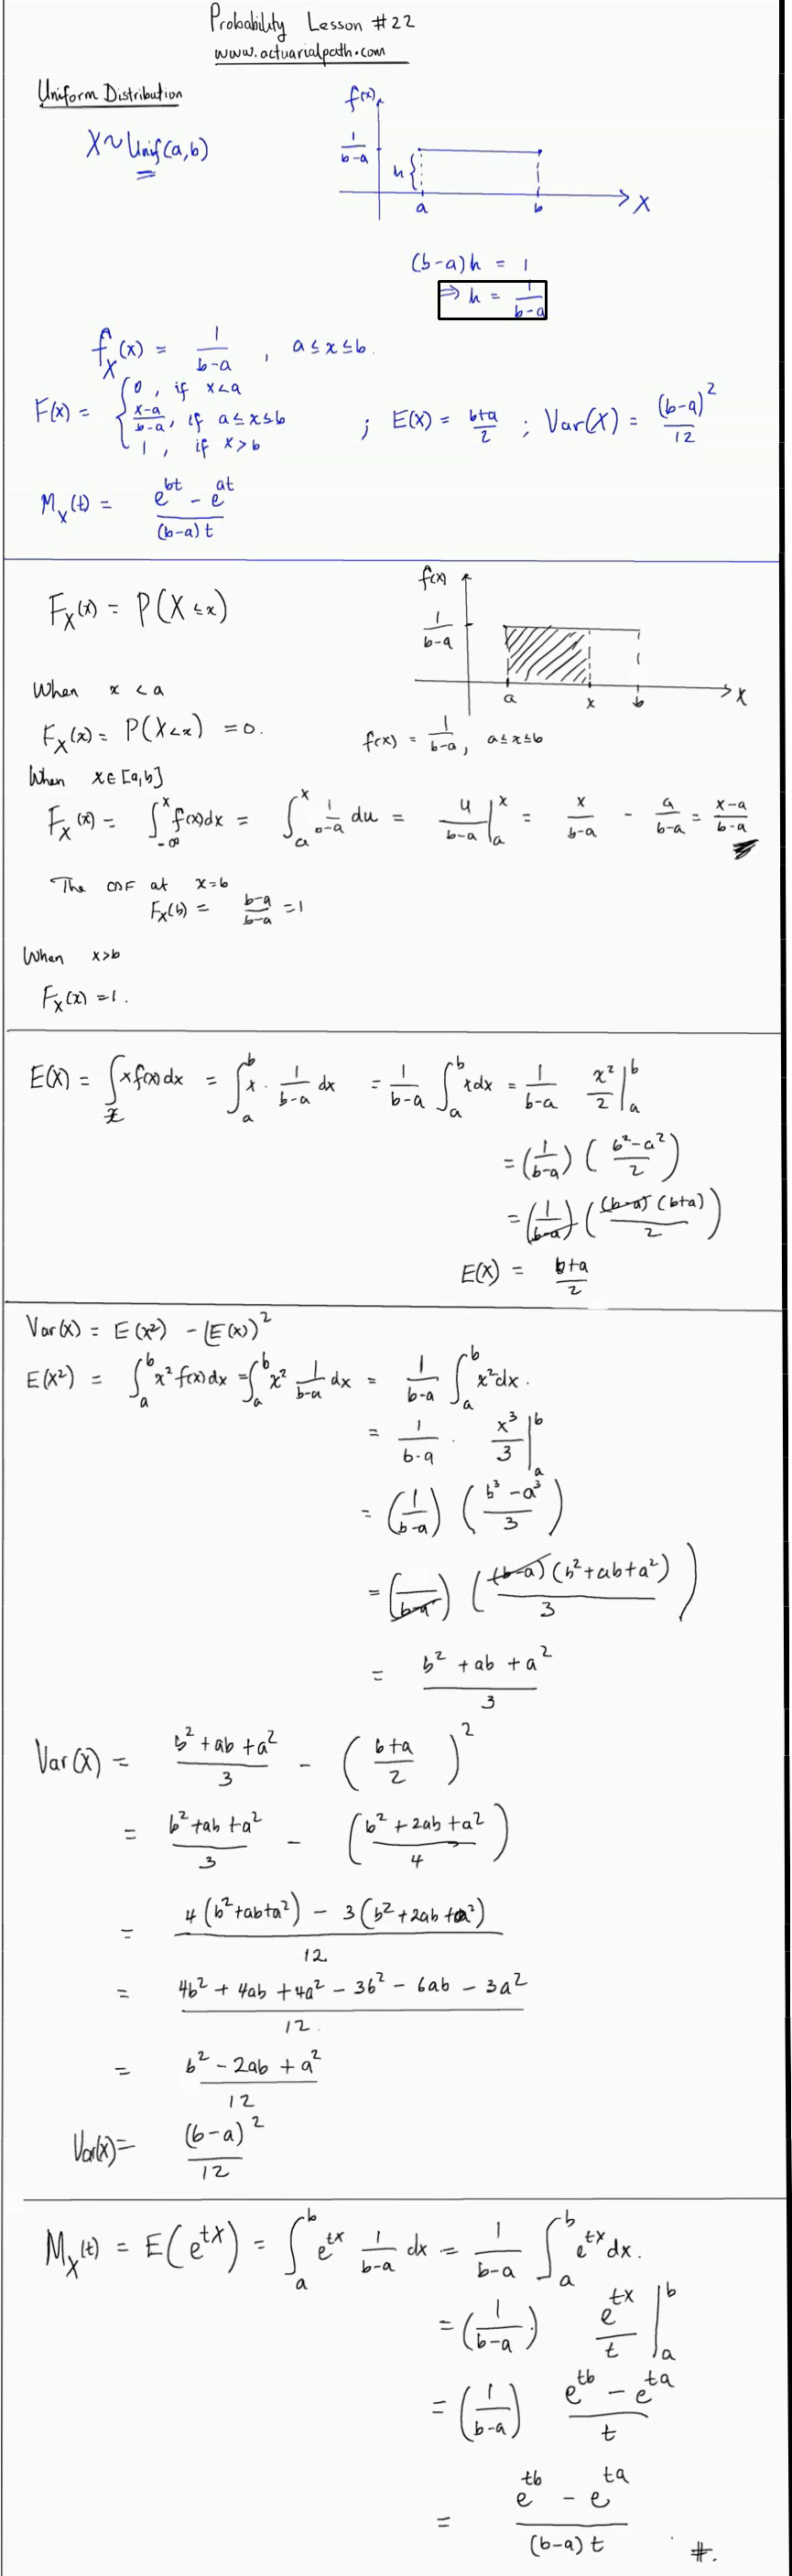 Probability Lesson #22
www.actuarialpath.com
Uniform Distribution
X ~ Unif(a,b)
f(x)
1/(b-a)
h{
a b X
(b-a)h = 1
⇒ h = 1/(b-a)
f_X(x) = 1/(b-a) , a ≤ x ≤ b.
F(x) = { 0, if x<a
(x-a)/(b-a), if a ≤ x ≤ b
1, if x>b
; E(X) = (b+a)/2 ; Var(X) = (b-a)²/12
M_X(t) = (e^{bt} - e^{at})/((b-a)t)
F_X(x) = P(X ≤ x)
f(x)
1/(b-a)
a x b X
f(x) = 1/(b-a), a ≤ x ≤ b
When x < a
F_X(x) = P(X<x) = 0.
When x∈[a,b]
F_X(x) = ∫_{-∞}^{x} f(x)dx = ∫_a^x 1/(b-a) du = u/(b-a) |_a^x = x/(b-a) - a/(b-a) = (x-a)/(b-a)
The CDF at x=b
F_X(b) = (b-a)/(b-a) = 1
When x>b
F_X(x) = 1.
E(X) = ∫_x x f(x) dx = ∫_a^b x · 1/(b-a) dx = 1/(b-a) ∫_a^b x dx = 1/(b-a) x²/2 |_a^b
= (1/(b-a)) ((b²-a²)/2)
= (1/(b-a)) ((b-a)(b+a)/2)
E(X) = (b+a)/2
Var(X) = E(X²) - (E(X))²
E(X²) = ∫_a^b x² f(x) dx = ∫_a^b x² 1/(b-a) dx = 1/(b-a) ∫_a^b x² dx.
= 1/(b-a) · x³/3 |_a^b
= (1/(b-a)) ((b³-a³)/3)
= (1/(b-a)) ((b-a)(b²+ab+a²)/3)
= (b²+ab+a²)/3
Var(X) = (b²+ab+a²)/3 - ((b+a)/2)²
= (b²+ab+a²)/3 - ((b²+2ab+a²)/4)
= (4(b²+ab+a²) - 3(b²+2ab+a²))/12
= (4b²+4ab+4a²-3b²-6ab-3a²)/12.
= (b²-2ab+a²)/12
Var(X) = (b-a)²/12
M_X(t) = E(e^{tX}) = ∫_a^b e^{tx} 1/(b-a) dx = 1/(b-a) ∫_a^b e^{tx} dx.
= (1/(b-a)) e^{tx}/t |_a^b
= (1/(b-a)) (e^{tb} - e^{ta})/t
= (e^{tb} - e^{ta})/((b-a)t) #.